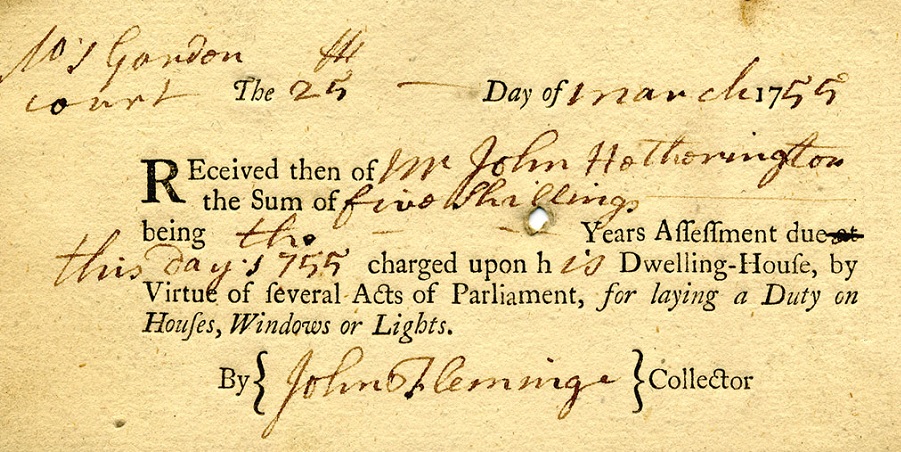 No 1 Gordon
court The 25 th Day of march 1755
REceived then of Mr John Hetherington
the Sum of five Shillings
being the Years Aſſeſſment due at
this day 1755 charged upon h is Dwelling-Houſe, by
Virtue of ſeveral Acts of Parliament, for laying a Duty on
Houſes, Windows or Lights.
By { John Fleminge } Collector